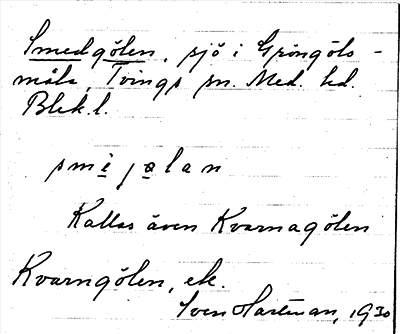 Smedgölen, sjö i Gröngöls-
måla, Tvings sn. Med. hd.
Blek. l.
smi jalan
Kallas även Kvarnagölen
Kvarngölen, ek.
Sven Hartman, 1930